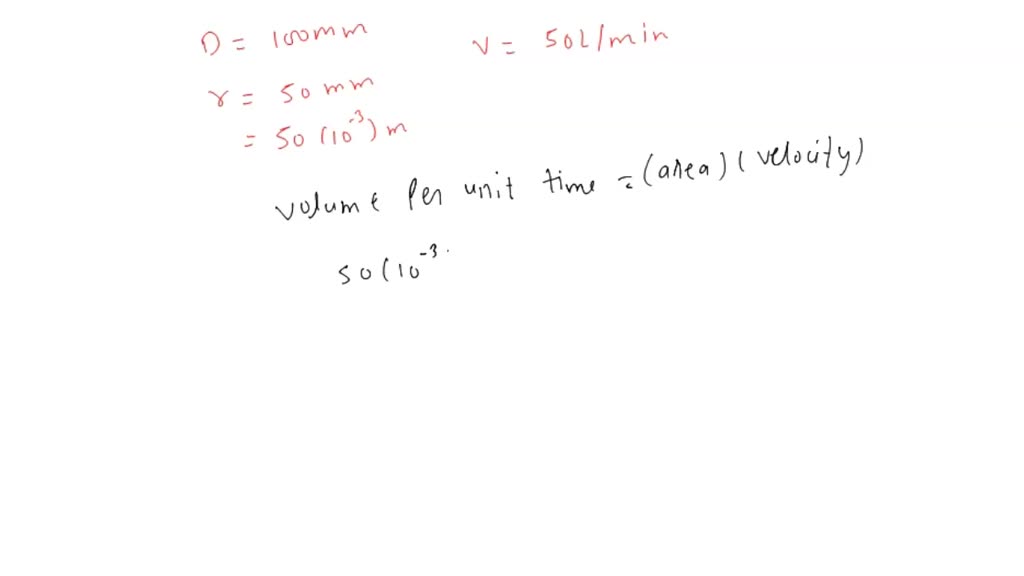 D = 100mm
V = 50L/min
r = 50 mm
= 50 (10^-3) m
volume Per unit time = (area) (velocity)
50(10^-3